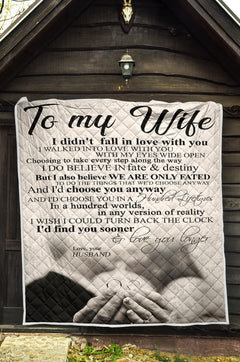 To my Wife
I didn't fall in love with you
I WALKED INTO LOVE WITH YOU
WITH MY EYES WIDE OPEN
Choosing to take every step along the way
I DO BELIEVE IN fate & destiny
But I also believe WE ARE ONLY FATED
TO DO THE THINGS THAT WE'D CHOOSE ANYWAY
And I'd choose you anyway
AND I'D CHOOSE YOU IN A Hundred Lifetimes
In a hundred worlds,
in any version of reality
I WISH I COULD TURN BACK THE CLOCK
I'd find you sooner
& love you longer
Love, your
HUSBAND